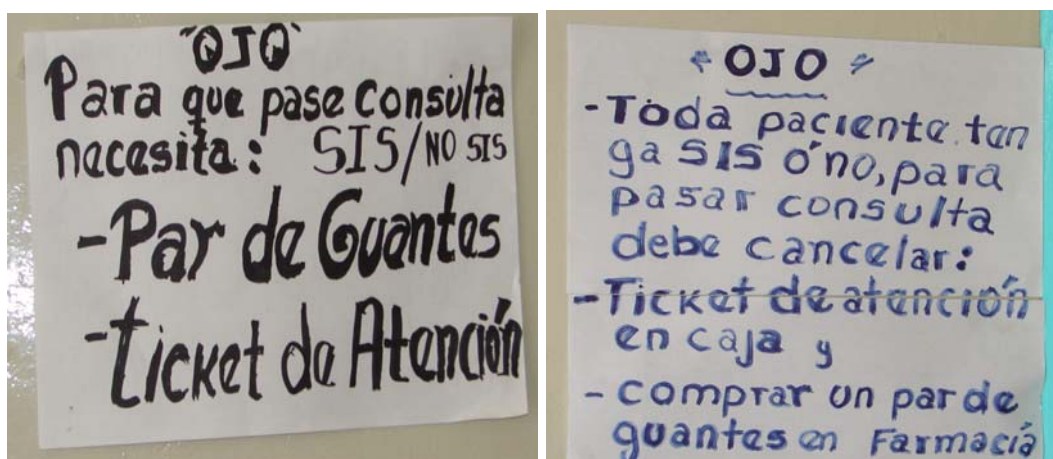 "OJO"
Para que pase consulta
necesita: SIS/NO SIS
-Par de Guantes
-Ticket de Atención
"OJO"
-Toda paciente, ten
ga SIS ó no, para
pasar consulta
debe cancelar:
-Ticket de atención
en caja y
- comprar un par de
guantes en Farmacia